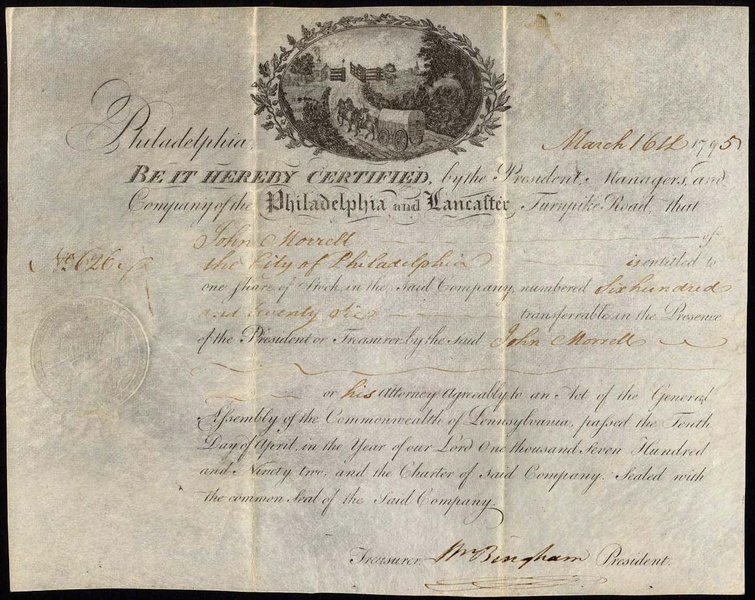 Philadelphia March 16th 1795
BE IT HEREBY CERTIFIED, by the President, Managers, and
Company of the Philadelphia and Lancaster Turnpike Road, that
John Morrell of
No. 626
the City of Philadelphia is entitled to
one Share of Stock, in the Said Company, numbered Six hundred
and twenty six transferrable in the Presence
of the President or Treasurer by the said John Morrell
or his Attorney Agreably to an Act of the General
Assembly of the Commonwealth of Pennsylvania, passed the Tenth
Day of April, in the Year of our Lord One thousand Seven Hundred
and Ninety two, and the Charter of Said Company. Sealed with
the common Seal of the Said Company.
Treasurer Wm Bingham President.